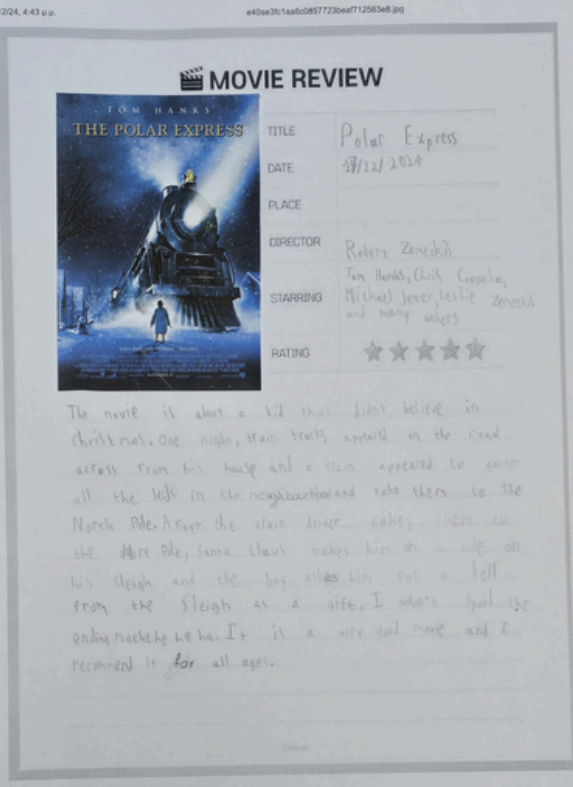 12/24, 4:43 μ.μ.
e40ae3fc1aa6c0857723beaf712563e8.jpg
MOVIE REVIEW
TOM HANKS
THE POLAR EXPRESS
TITLE Polar Express
DATE 17/12/2024
PLACE
DIRECTOR Robert Zemeckis
STARRING Tom Hanks, Chris Coppola,
Michael Jeter, Leslie Zemeckis
and many others
RATING
The movie is about a kid that didn't believe in
Christmas. One night, train tracks appeared on the road
across from his house and a train appeared to gather
all the kids in the neighbourhood and take them to the
North Pole. After the train driver takes them to
the Pole, Santa Claus takes him on a ride on
his sleigh and the boy askes him for a bell
from the Sleigh as a gift. I won't spoil the
ending It is a very good movie and I
recommend it for all ages.